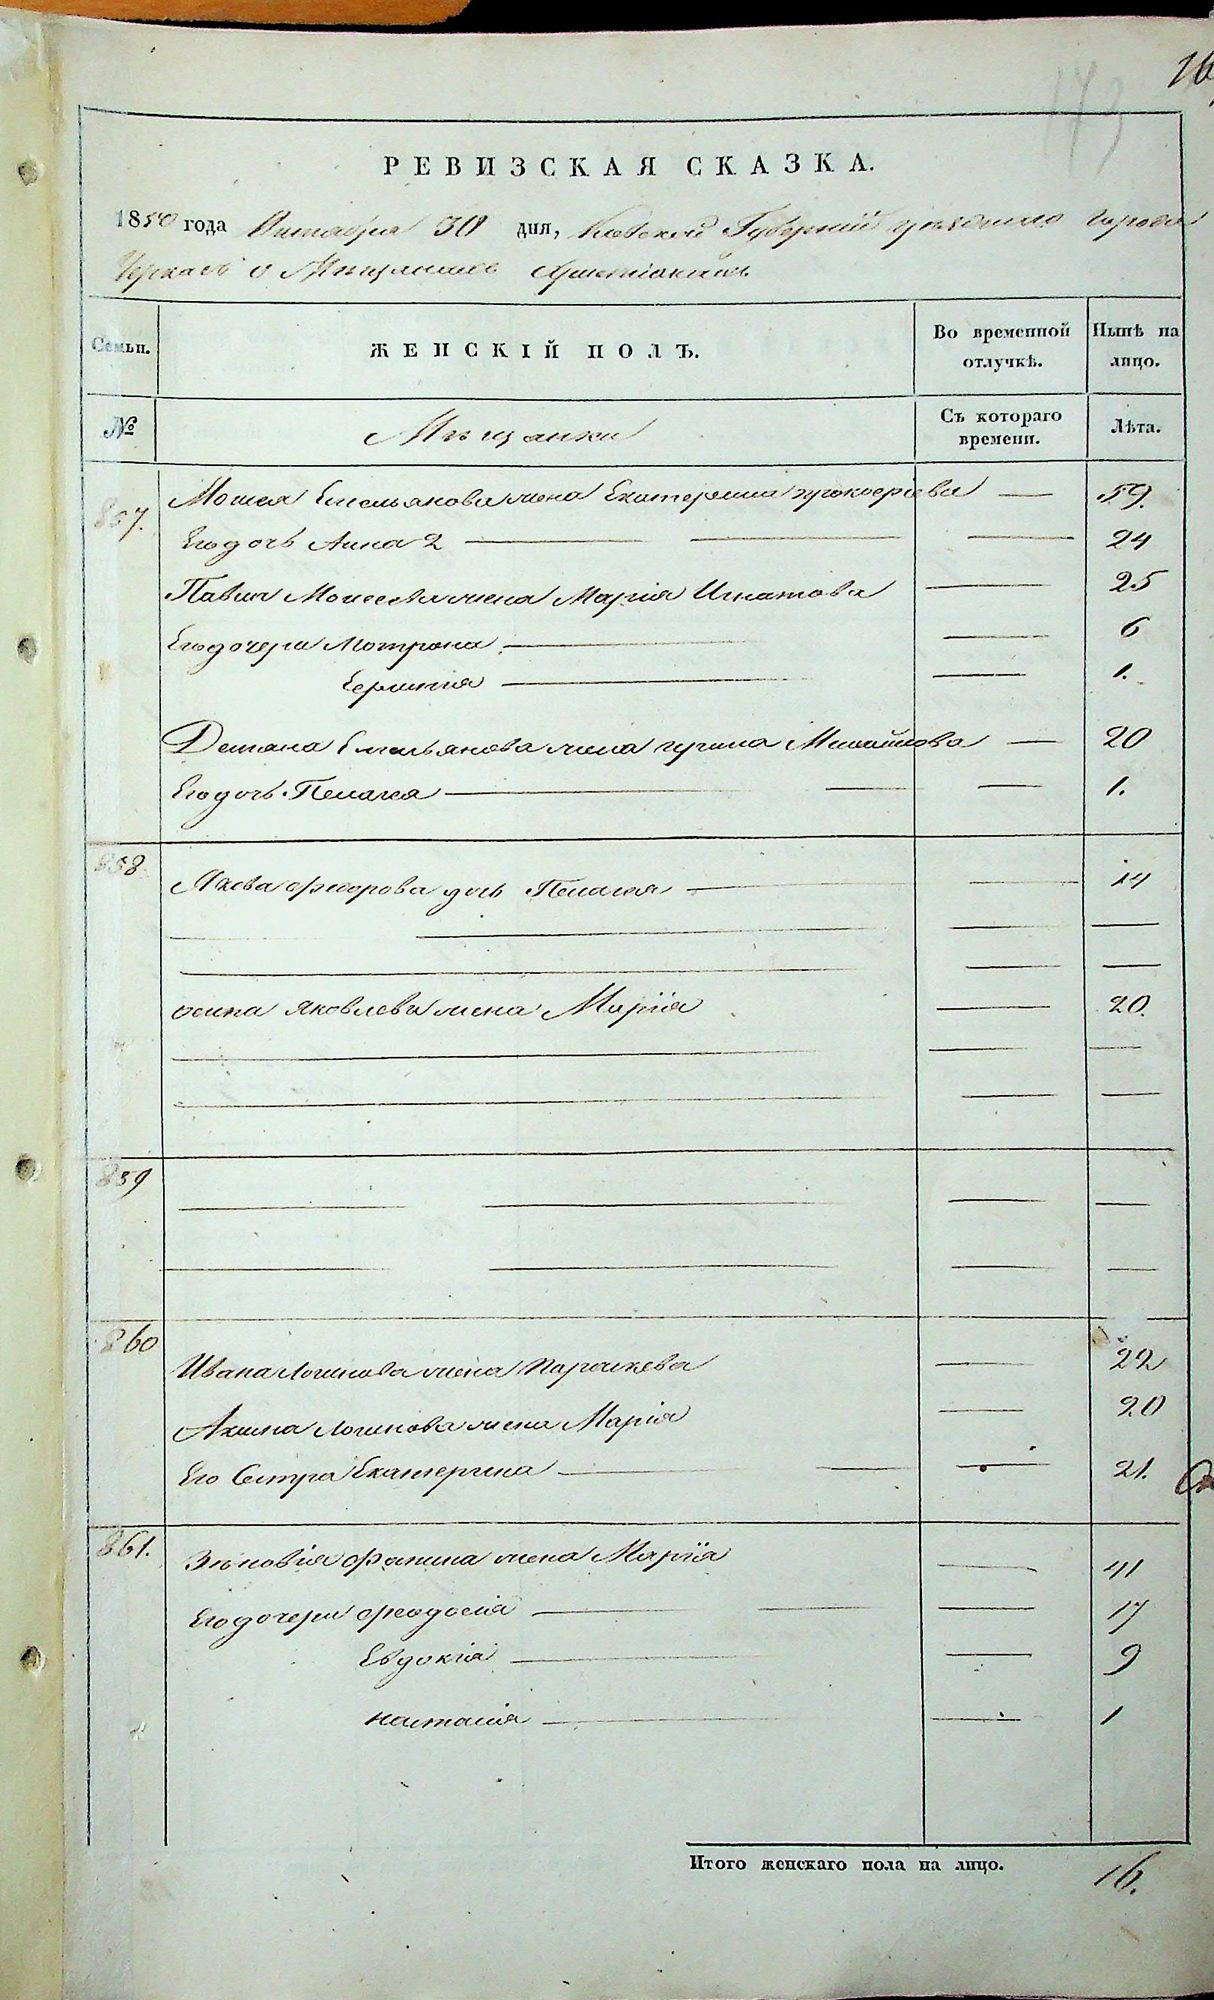 16
173
РЕВИЗСКАЯ СКАЗКА.
1850 года Октября 30 дня, Киевской Губернии уезднаго Города
Черкасъ о Мѣщанахъ Христіанахъ
Семьи.
ЖЕНСКІЙ ПОЛЪ.
Во временной отлучкѣ.
Нынѣ на лицо.
№
Мѣщанки
Съ котораго времени.
Лѣта.
857.
Мойсея Емельянова жена Екатерина Прокофіева — 59.
Его дочь Анна 2 — 24
Павла Моисеева жена Марія Игнатова — 25
Его дочери Мотрона — 6
— 1.
Демяна Емельянова жена Михайлова — 20
Его дочь Пелагея — 1.
858.
Якова Федорова дочь Пелагея — 14
осипа Яковлева жена Марія — 20.
859
860
Ивана Логинова жена Параскева — 22
Акима Логинова жена Марія — 20
Его Сестра Екатерина — 21.
861.
Зѣновія Фомина жена Марія — 41
Его дочери Феодосія — 17
Евдокія — 9
настасія — 1
Итого женскаго пола на лицо. 16.